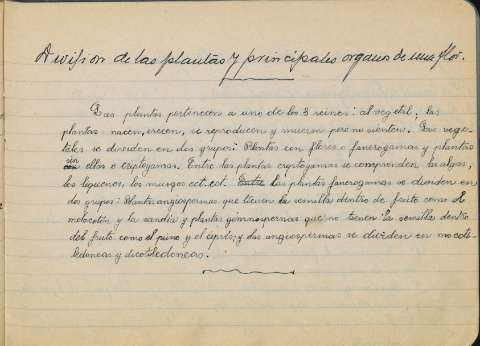 Division de las plantas y principales organos de una flor.
Las plantas pertenecen a uno de los 3 reinos: al vegetal; las
plantas nacen, crecen, se reproducen y mueren pero no sienten. Los vege-
tales se dividen en dos grupos: Plantas con flores o fanerogamas y plantas
sin ellas o criptogamas. Entre las plantas criptogamas se comprenden las algas,
los liquenos, los musgos ect. ect. Entre las plantas fanerogamas se dividen en
dos grupos: Plantas angiospermas que tienen la semilla dentro de fruto como el
melocotón y la sandia y plantas gimnospermas que no tienen la semilla dentro
del fruto como el pino y el ciprés; y las angiospermas se dividen en monocoti-
ledoneas y dicotiledoneas.